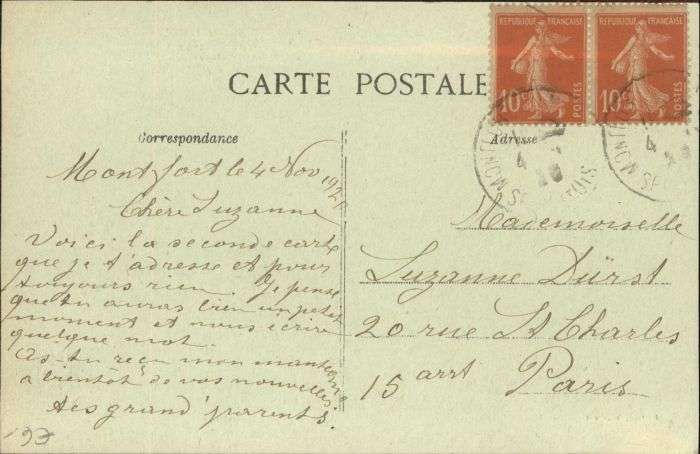 REPUBLIQUE FRANÇAISE
REPUBLIQUE FRANÇAISE
10c POSTES
10c POSTES
CARTE POSTALE
Correspondance
Adresse
Montfort le 4 Nov 1920
Chère Suzanne
Voici la seconde carte
que je t'adresse et pour
toujours rien. Je pense
que tu auras bien un petit
moment et nous écrire
quelque mot.
As-tu reçu mon
à bientôt de vos nouvelles
tes grand'parents.
Mademoiselle
Suzanne Dürst
20 rue St Charles
15 arrt Paris